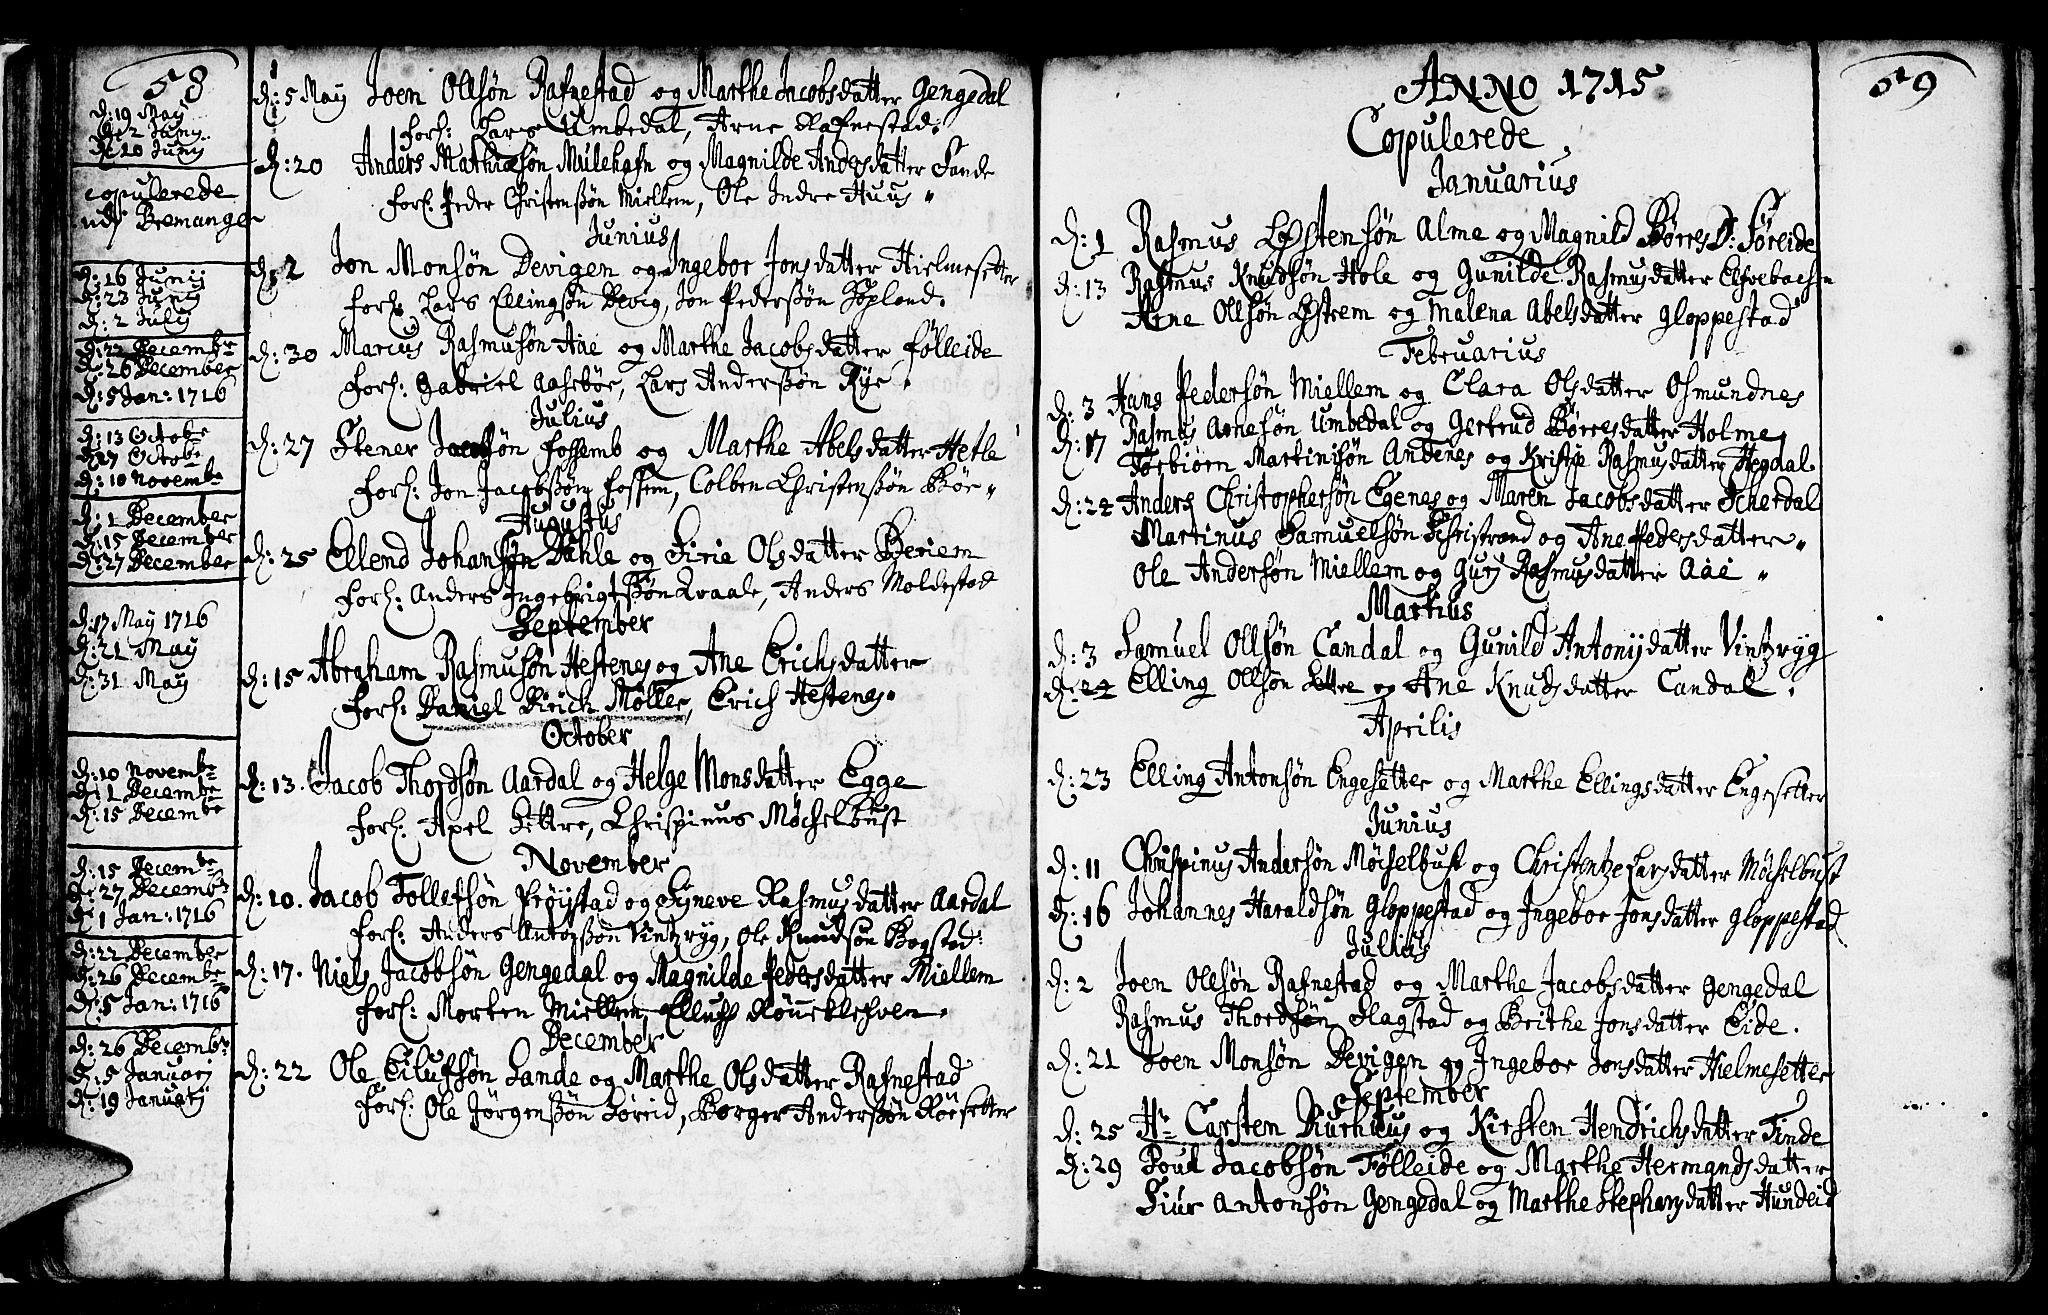 58
d: 19 May
d: 2 Junij
d: 10 Junij
copulerede
udj Bremanger
d: 16 Junij
d: 23 Junij
d: 2 Julij
d: 22 Decembr
d: 26 December
d: 5 Jan: 1716
d: 13 Octobr
d: 27 Octobr
d: 10 Novembr
d: 1 December
d: 15 December
d: 27 December
d: 17 May 1716
d: 21 May
d: 31 May
d: 10 Novembr
d: 1 Decembr
d: 15 Decembr
d: 15 Decembr
d: 27 Decembr
d: 1 Jan: 1716
d: 22 December
d: 26 December
d: 5 Jan: 1716
d: 26 Decembr
d: 5 Januarj
d: 19 Januarj
d: 5 May Joen Ollsøn Rafnestad og Marthe Jacobsdatter Gengedal
forl: Lars Umbedal, Arne Rafnestad.
d: 20 Anders Mathiæsøn Mulehafn og Magnilde Andersdatter Sande
forl: Peder Christenssøn Miellem, Ole Indre Huus
Junius
d: 2 Jon Monsøn Devigen og Ingebor Jonsdatter Hielmesetter
forl: Lars Ellingsøn Devig, Jon Pederssøn Hopland.
d: 30 Marcus Rasmusøn Aae og Marthe Jacobsdatter Følleide
forl: Gabriel Aasebøe, Lars Anderssøn Rye.
Julius
d: 27 Stener Jacobsøn Fossemb og Marthe Abelsdatter Hetle
forl: Jon Jacobssøn Fossem, Colben Christenssøn Bøe
Augustus
d: 25 Ellend Johansøn Dahle og Sirie Olsdatter Beriem
forl: Anders Ingebrigtssøn Qvaale, Anders Moldestad
September
d: 15 Abraham Rasmusøn Hestenes og Ane Erichsdatter
forl: Daniel Dirich Møller, Erich Hestenes.
October
d: 13. Jacob Thordsøn Aardal og Helge Monsdatter Egge
forl: Apel Settre, Chrispinus Møchelbust
November
d: 10. Jacob Tollefsøn Prøystad og Syneve Rasmusdatter Aardal
forl: Anders Antonssøn Vintzryg, Ole Knudsøn Bogstad:
d: 17. Niels Jacobsøn Gengedal og Magnilde Pedersdatter Miellem
forl: Morten Miellem, Elluf Rønneklefven.
December
d: 22 Ole Eilufsøn Sande og Marthe Olsdatter Rafnestad
forl: Ole Jørgenssøn Søreid, Borger Anderssøn Røesetter
59
ANNO 1715
Copulerede
Januarius
d: 1 Rasmus Østensøn Alme og Magnild Børres D: Søreide
d: 13 Rasmus Knudsøn Hole og Gunilde Rasmusdatter
Arne Ollsøn Østrem og Malena Abelsdatter Gloppestad
Februarius
d: 3 Hans Pedersøn Miellem og Clara Olsdatter Osmundnes
d: 17 Rasmus Arnesøn Umbedal og Gertrud Børresdatter Holme
Torbiørn Martinisøn Andenes og Kristje Rasmusdatter Hegdal.
d: 24 Anders Christophersøn Egenes og Maren Jacobsdatter Scherdal
Martinus Samuelsøn og Ane Pedersdatter
Ole Andersøn Miellem og Gurj Rasmusdatter Aae
Martius
d: 3 Samuel Ollsøn Candal og Gunild Antonijdatter Vintzryg
d: 24 Elling Ollsøn Settre og Ane Knudsdatter Candal.
Aprilis
d: 23 Elling Antonsøn Engesetter og Marthe Ellingsdatter Engesetter
Junius
d: 11 Chrispinus Andersøn Møchelbust og Christentze Larsdatter Møchelbust
d: 16 Johannes Haraldsøn Gloppestad og Ingebor Jonsdatter Gloppestad
Julius
d: 2 Joen Ollsøn Rafnestad og Marthe Jacobsdatter Gengedal
Rasmus Thordsøn Slagstad og Brithe Jonsdatter Eide.
d: 21 Joen Monsøn Devigen og Ingebor Jonsdatter Hielmesetter
September
d: 25 Hr Carsten og Kirsten Hendrichsdatter Finde
d: 29 Poul Jacobsøn Følleide og Marthe Hermandsdatter
Siur Antonsøn Gengedal og Marthe Stephansdatter Hundeid